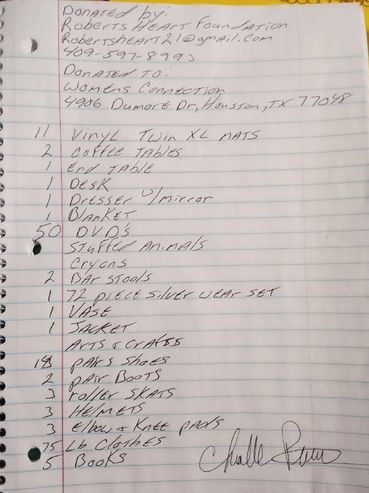 Donated by:
Roberts HEART Foundation
Robertsheart21@gmail.com
409-597-8993
Donated to:
Womens Connection
4906 Dumore Dr, Houston, TX 77048
11 Vinyl Twin XL mats
2 Coffee Tables
1 End Table
1 Desk
1 Dresser w/mirror
1 Blanket
50 DVD's
Stuffed Animals
Cryons
2 Bar stools
1 72 piece silver wear set
1 Vase
1 Jacket
Arts & Crafts
18 pairs shoes
2 pair Boots
3 roller skats
3 Helmets
3 Elbow & Knee pads
75 Lb Clothes
5 Books